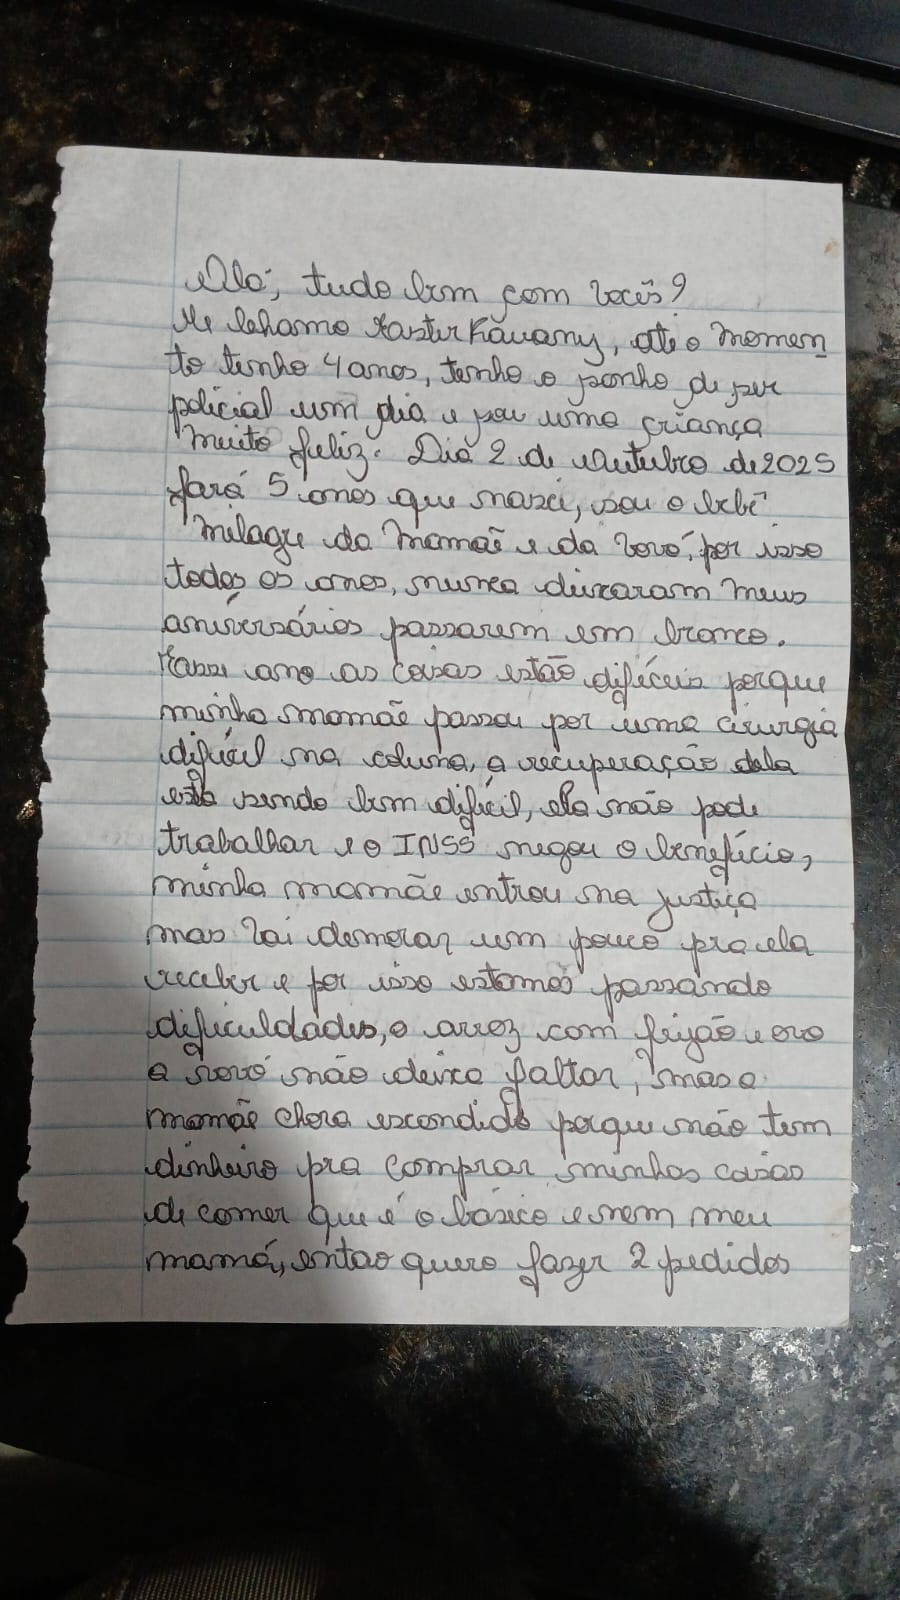 Olá, tudo bem com vocês?
Me chamo Kauany, até o momen
to tenho 4 anos, tenho o sonho de ser
policial um dia e sou uma criança
muito feliz. Dia 2 de outubro de 2025
fará 5 anos que nasci, sou o bebê
milagre da mamãe e da vovó, por isso
todos os anos, nunca deixaram meus
aniversários passarem em branco.
Esse ano as coisas estão difíceis porque
minha mamãe passou por uma cirurgia
difícil na coluna, a recuperação dela
está sendo bem difícil, ela não pode
trabalhar e o INSS negou o benefício,
minha mamãe entrou na justiça
mas vai demorar um pouco pra ela
receber e por isso estamos passando
dificuldades, o arroz com feijão e ovo
a vovó não deixa faltar, mas a
mamãe chora escondido porque não tem
dinheiro pra comprar minhas coisas
de comer que é o básico e nem meu
mamá, então quero fazer 2 pedidos